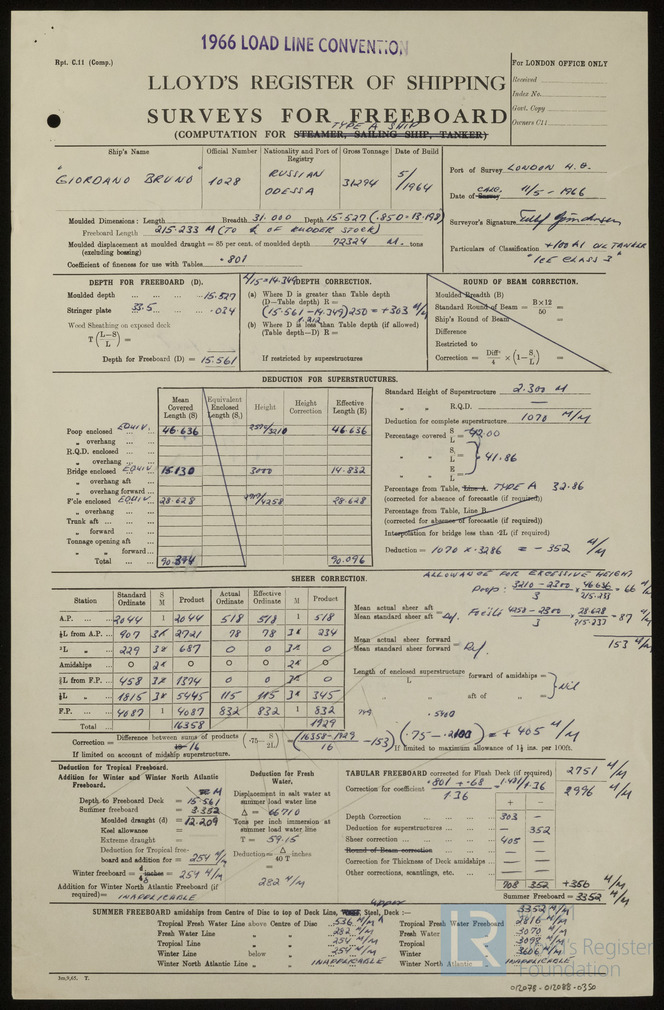 1966 LOAD LINE CONVENTION
Rpt. C.11 (Comp.)
For LONDON OFFICE ONLY
Received
Index No.
Govt. Copy
Owners C11
LLOYD'S REGISTER OF SHIPPING
SURVEYS FOR FREEBOARD
TYPE A SHIP
(COMPUTATION FOR STEAMER, SAILING SHIP, TANKER)
Ship's Name Official Number Nationality and Port of Registry Gross Tonnage Date of Build
"GIORDANO BRUNO" 1028 RUSSIAN ODESSA 31294 5/1964
Port of Survey LONDON H.O.
Date of Survey CALC. 11/5-1966
Surveyor's Signature
Particulars of Classification +100A1 OIL TANKER
"ICE CLASS 3"
Moulded Dimensions: Length Breadth 31.000 Depth 15.527 (.85D=13.198)
Freeboard Length 215.233 M (TO ℄ OF RUDDER STOCK)
Moulded displacement at moulded draught = 85 per cent. of moulded depth 72324 M. tons
(excluding bossing)
Coefficient of fineness for use with Tables .801
DEPTH FOR FREEBOARD (D).
Moulded depth 15.527
Stringer plate 33.5 .034
Wood Sheathing on exposed deck
T (L-S/L) =
Depth for Freeboard (D) = 15.561
L/15 = 14.349
DEPTH CORRECTION.
(a) Where D is greater than Table depth
(D-Table depth) R =
(15.561 - 14.349) 250 = +303 M/M
1.212
(b) Where D is less than Table depth (if allowed)
(Table depth-D) R =
If restricted by superstructures
ROUND OF BEAM CORRECTION.
Moulded Breadth (B)
Standard Round of Beam = B×12/50 =
Ship's Round of Beam =
Difference
Restricted to
Correction = Diff/4 × (1-S/L) =
DEDUCTION FOR SUPERSTRUCTURES.
Mean Covered Length (S) Equivalent Enclosed Length (S,) Height Height Correction Effective Length (E)
Poop enclosed EQUIV. 46.636 46.636
„ overhang
R.Q.D. enclosed
„ overhang
Bridge enclosed EQUIV. 15.130 3000 14.832
„ overhang aft
„ overhang forward
F'cle enclosed EQUIV 28.628 28.628
„ overhang
Trunk aft
„ forward
Tonnage opening aft
„ „ forward
Total 90.394 90.096
Standard Height of Superstructure 2.300 M
„ „ R.Q.D. —
Deduction for complete superstructure 1070 M/M
Percentage covered S/L = 42.00
„ „ S,/L =
„ „ E/L = 41.86
Percentage from Table, Line A. TYPE A 32.86
(corrected for absence of forecastle (if required))
Percentage from Table, Line B.
(corrected for absence of forecastle (if required))
Interpolation for bridge less than .2L (if required)
Deduction = 1070 x .3286 = - 352 M/M
SHEER CORRECTION.
Station Standard Ordinate S M Product Actual Ordinate Effective Ordinate M Product
A.P. 2044 1 2044 518 518 1 518
⅙L from A.P. 907 3 2721 78 78 3 234
⅓L „ 229 3 687 0 0 3 0
Amidships 0 2 0 0 0 2 0
⅓L from F.P. 458 3 1374 0 0 3 0
⅙L „ 1815 3 5445 115 115 3 345
F.P. 4087 1 4087 832 832 1 832
Total 16358 1929
ALLOWANCE FOR EXCESSIVE HEIGHT
Poop: 3210 - 2300/3 x 46636/215.233 = 66 M/M
Mean actual sheer aft
Mean standard sheer aft = Def.
4258 - 2300/3 x 28.628/215.233 = 87 M/M
153 M/M
Mean actual sheer forward
Mean standard sheer forward = Def.
Length of enclosed superstructure forward of amidships =
L
„ „ aft of „ = Nil
Correction = Difference between sums of products/16 (.75 - S/2L) = (16358-1929/16 - 153) (.75 - .2100) = + 405 M/M
.5400
If limited on account of midship superstructure.
If limited to maximum allowance of 1½ ins. per 100ft.
Deduction for Tropical Freeboard.
Addition for Winter and Winter North Atlantic Freeboard.
M
Depth to Freeboard Deck = 15.561
Summer freeboard = 3.352
Moulded draught (d) = 12.209
Keel allowance =
Extreme draught =
Deduction for Tropical freeboard and addition for = 254 M/M
Winter freeboard = d/4 inches = 254 M/M
Addition for Winter North Atlantic Freeboard (if required) = INAPPLICABLE
Deduction for Fresh Water.
Displacement in salt water at summer load water line
Δ = 66710
Tons per inch immersion at summer load water line
T = 59.15
Deduction = Δ/40 T inches
=
282 M/M
TABULAR FREEBOARD corrected for Flush Deck (if required) 2751 M/M
Correction for coefficient .801 + .68/1.36 = 1.481/1.36 2996 M/M
+ -
Depth Correction 303 —
Deduction for superstructures — 352
Sheer correction 405 —
Round of Beam correction — —
Correction for Thickness of Deck amidships — —
Other corrections, scantlings, etc. — —
708 352 +356 M/M
Summer Freeboard = 3352 M/M
SUMMER FREEBOARD amidships from Centre of Disc to top of Deck Line, Wood, Steel, Deck :— UPPER
3352 M/M
Tropical Fresh Water Line above Centre of Disc 536 M/M Tropical Fresh Water Freeboard 2816 M/M
Fresh Water Line „ „ 282 M/M Fresh Water „ 3070 M/M
Tropical Line „ „ 254 M/M Tropical „ 3098 M/M
Winter Line below „ 254 M/M Winter „ 3606 M/M
Winter North Atlantic Line „ „ INAPPLICABLE Winter North Atlantic „ INAPPLICABLE
LR Lloyd's Register Foundation
012078-012088-0350